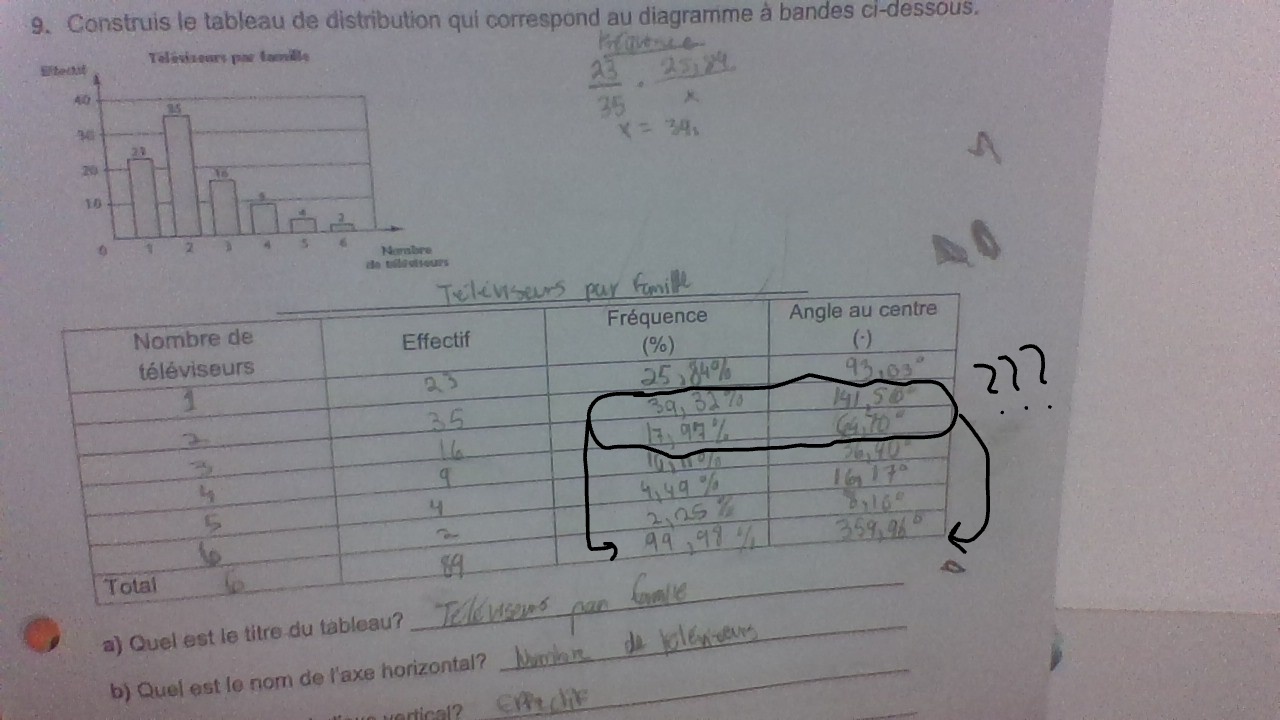 9. Construis le tableau de distribution qui correspond au diagramme à bandes ci-dessous.
Téléviseurs par famille
Effectif
40
30
20
10
0
23
35
16
9
4
2
1 2 3 4 5 6
Nombre
de téléviseurs
Fréquence
23 25,84
35 x
x = 39,
Téléviseurs par famille
Nombre de téléviseurs Effectif Fréquence (%) Angle au centre (·)
1 23 25,84% 93,03°
2 35 39,32% 141,56°
3 16 17,97% 64,70°
4 9
5 4 4,49% 16,17°
6 2 2,25% 8,16°
Total 6 89 99,98% 359,96°
???
a) Quel est le titre du tableau? Téléviseurs par famille
b) Quel est le nom de l'axe horizontal? Nombre de téléviseurs
vertical? Effectif